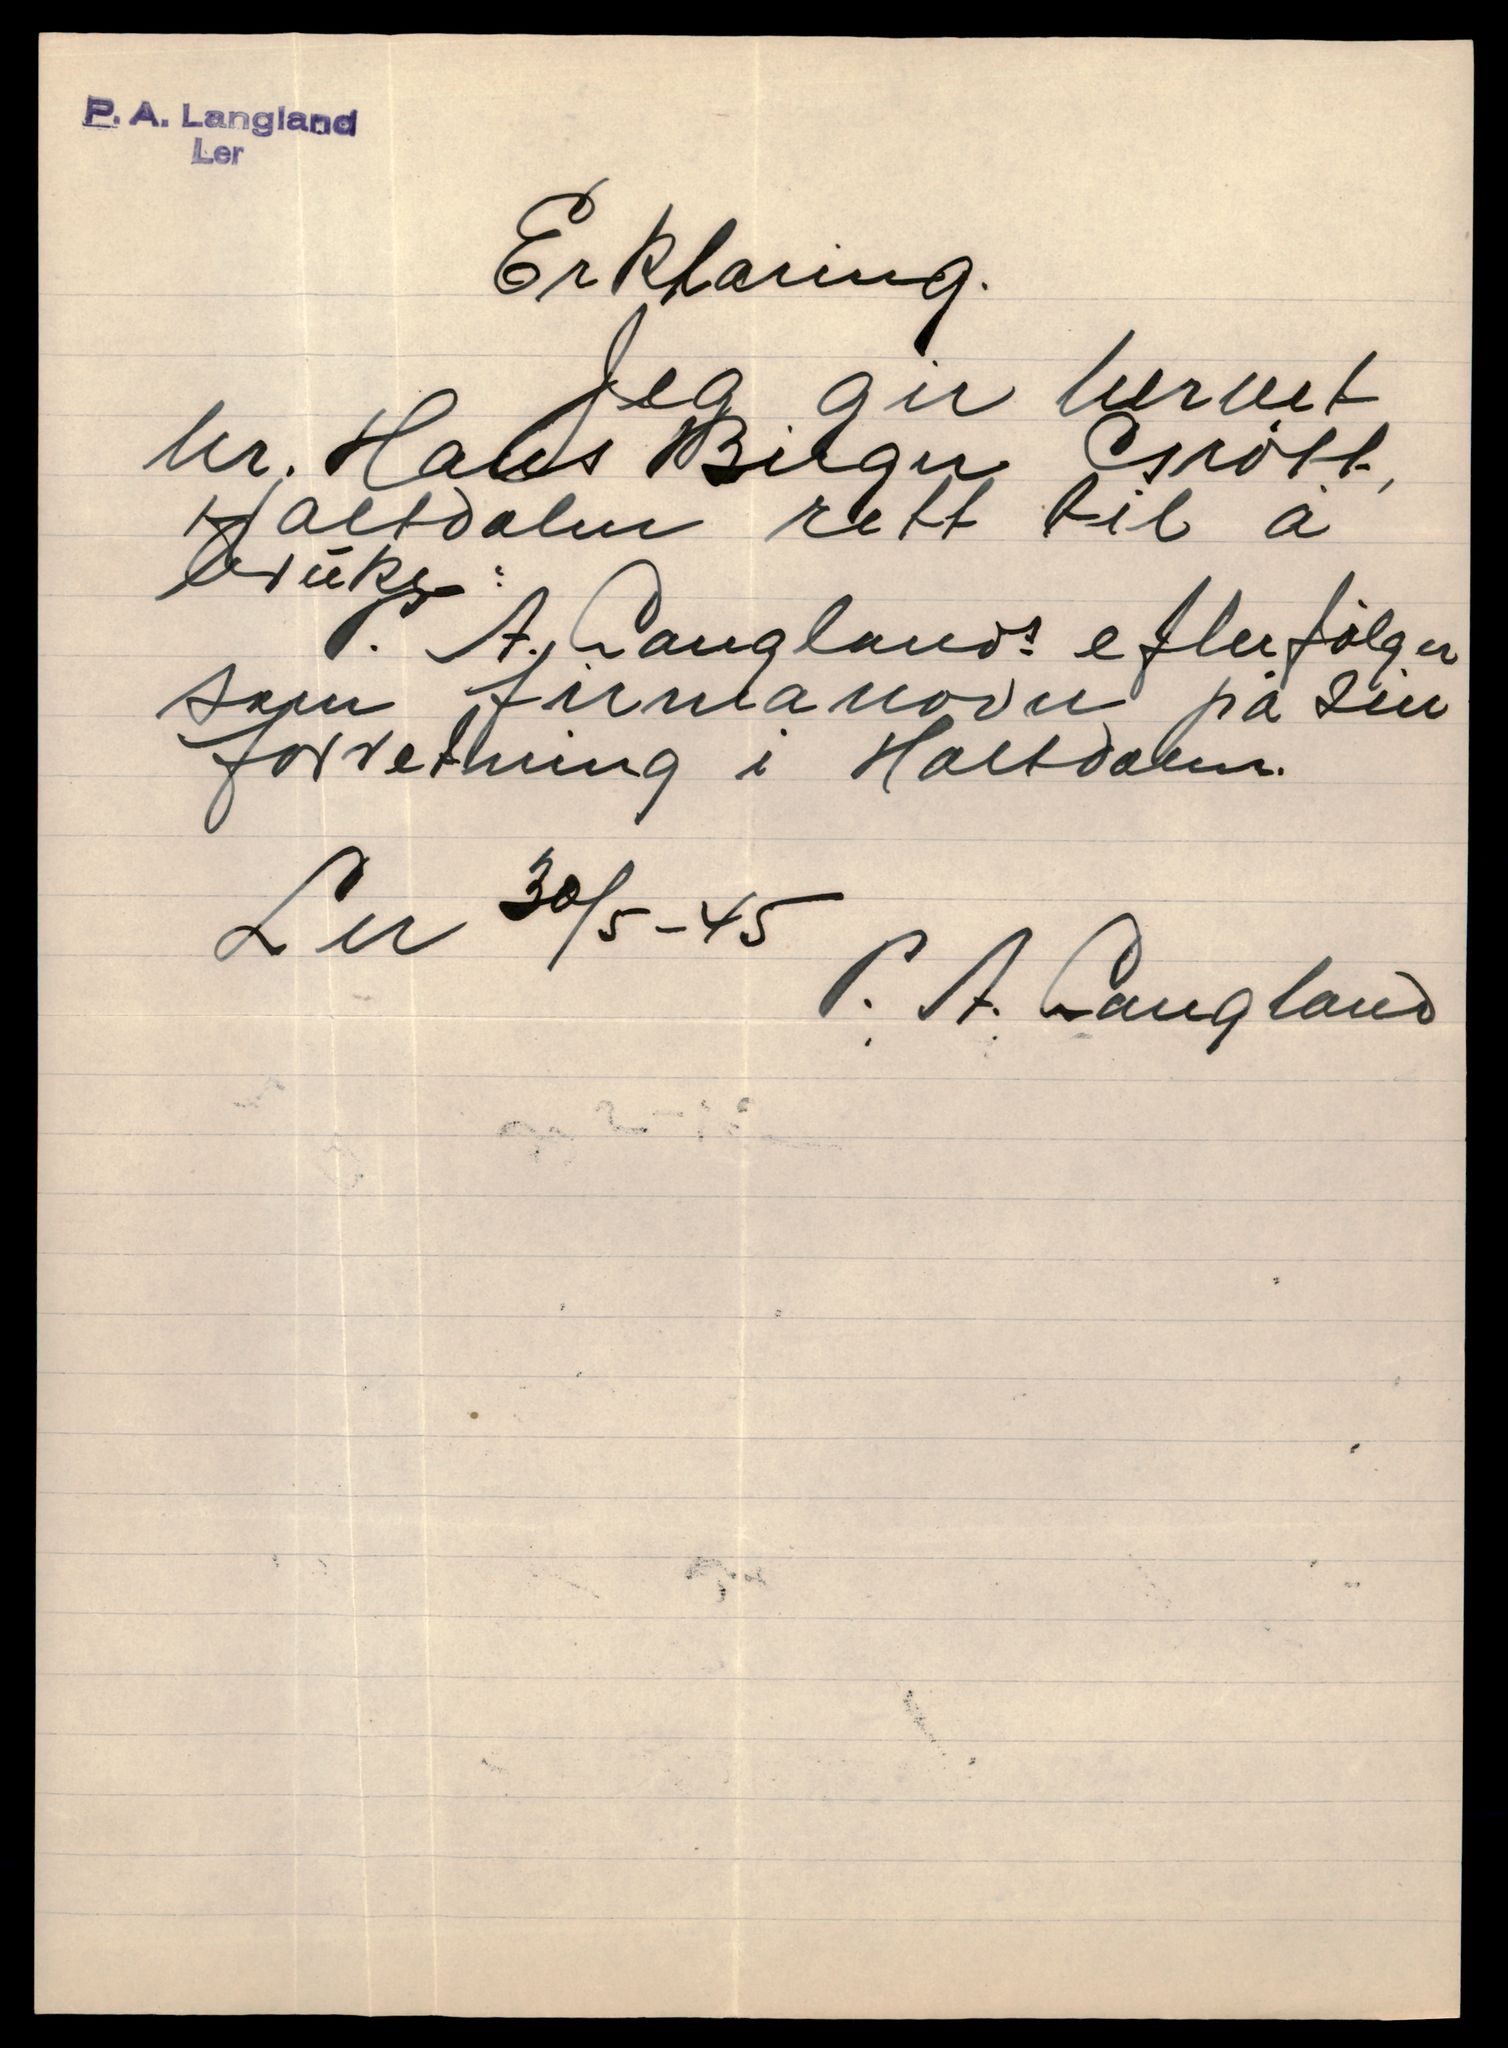 P. A. Langland
Ler
Erklæring.
Jeg gir hervet
hr. Hans Birger Esrótt,
Haltdalen rett til å
brúke:
P. A. Langlands efterfølger
som firmanavn på sin
forretning i Haltdalen.
Ler 30/5-45
P. A. Langland